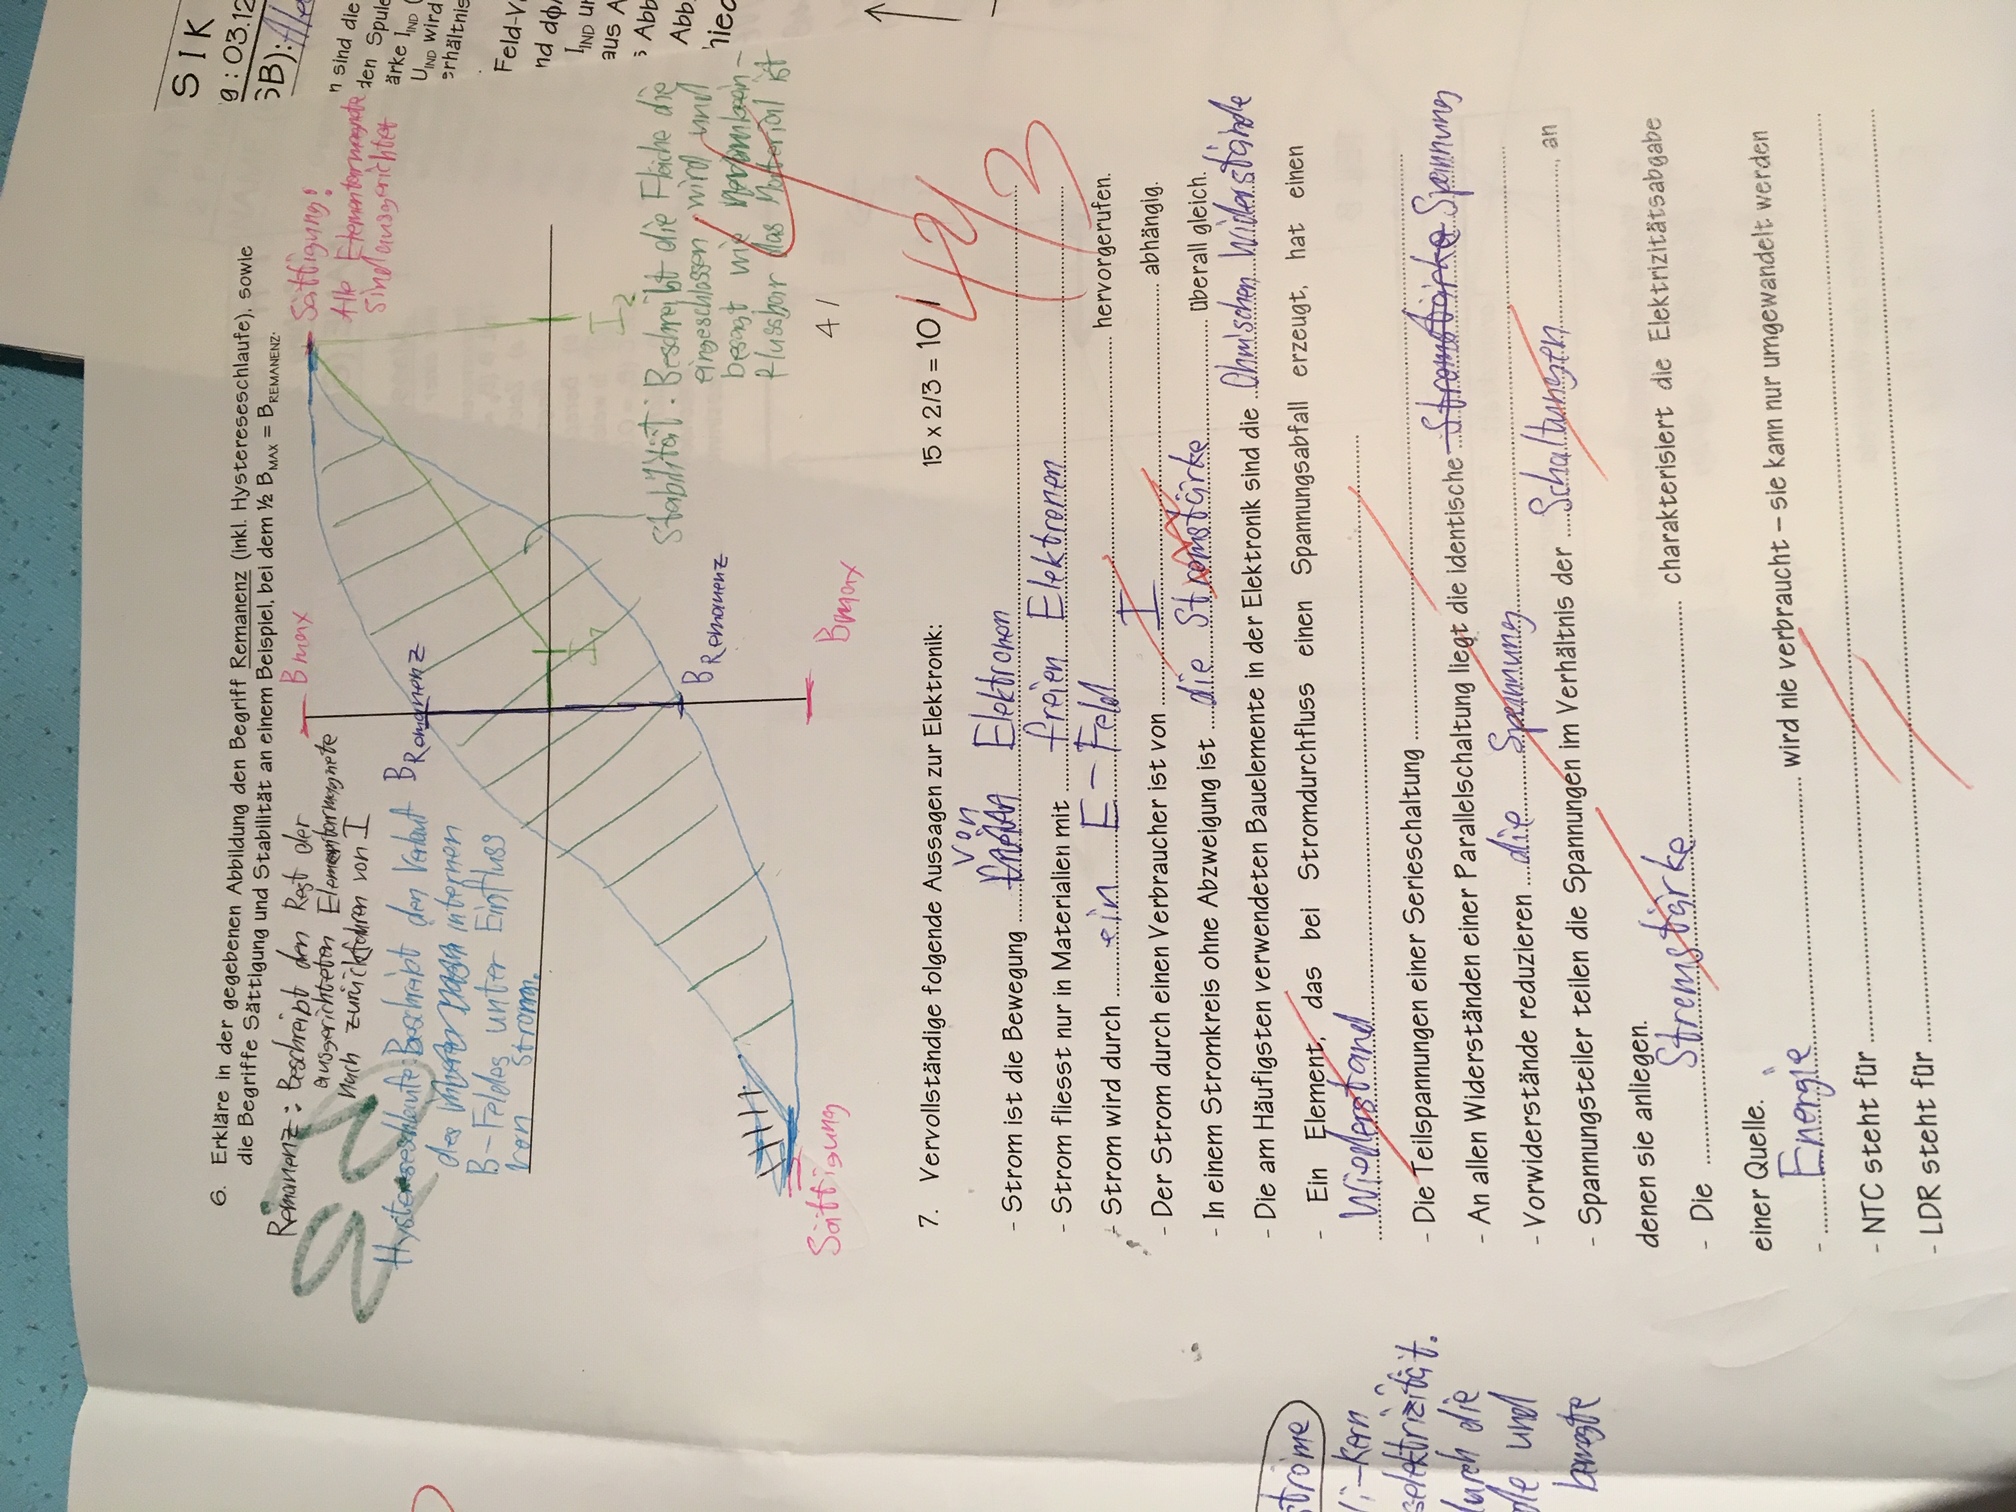 6. Erkläre in der gegebenen Abbildung den Begriff Remanenz (inkl. Hystereseschlaufe), sowie
die Begriffe Sättigung und Stabilität an einem Beispiel, bei dem ½ BMAX = BREMANENZ.
Remanenz: Beschreibt den Rest der
ausgerichteten Elementarmagnete
nach zurückfahren von I
Hystereseschlaufe: Beschreibt den Verlauf
des internen
B-Feldes unter Einfluss
von Strom.
Bmax
BRemanenz
Sättigung!
Alle Elementarmagnete
sind ausgerichtet
I1
I2
BRemanenz
Stabilität: Beschreibt die Fläche die
eingeschlossen wird und
besagt wie
flussbar das Material ist
Sättigung
Bmax
4 /
4
7. Vervollständige folgende Aussagen zur Elektronik: 15 x 2/3 = 10 /
- Strom ist die Bewegung von Elektronen
- Strom fliesst nur in Materialien mit freien Elektronen
- Strom wird durch ein E-Feld hervorgerufen.
- Der Strom durch einen Verbraucher ist von I abhängig.
- In einem Stromkreis ohne Abzweigung ist die Stromstärke überall gleich.
- Die am Häufigsten verwendeten Bauelemente in der Elektronik sind die Ohmischen Widerstände
- Ein Element, das bei Stromdurchfluss einen Spannungsabfall erzeugt, hat einen
Wiederstand
- Die Teilspannungen einer Serieschaltung
- An allen Widerständen einer Parallelschaltung liegt die identische Stromstärke Spannung
- Vorwiderstände reduzieren die Spannung
- Spannungsteiler teilen die Spannungen im Verhältnis der Schaltungen, an
denen sie anliegen.
- Die Stromstärke charakterisiert die Elektrizitätsabgabe
einer Quelle.
- Energie wird nie verbraucht – sie kann nur umgewandelt werden
- NTC steht für
- LDR steht für
ströme
i-Kern
selektrizität.
durch die
und
bewegte
SIK
g: 03.12
SB):
n sind die
den Spule
ärke IIND (
UIND wird
erhältnis
Feld-V
nd dϕ/
IIND un
aus A
s Abb
Abb